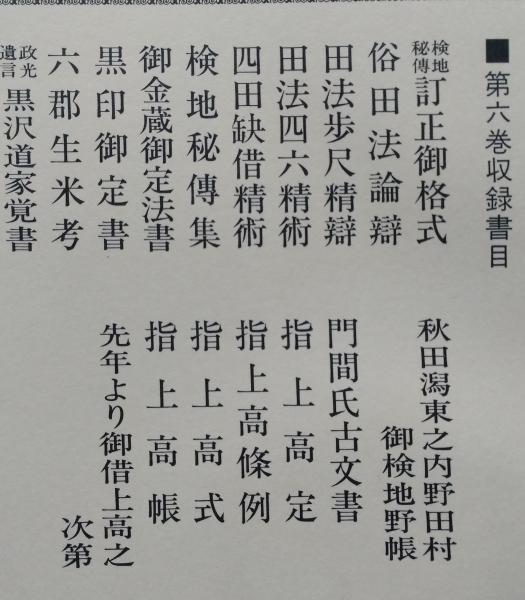 ■第六巻収録書目
検地秘傳 訂正御格式
俗田法論辯
田法歩尺精辯
田法四六精術
四田缺借精術
検地秘傳集
御金蔵御定法書
黒印御定書
六郡生米考
政光遺言 黒沢道家覚書
秋田潟東之内野田村
御検地野帳
門間氏古文書
指上高定
指上高條例
指上高式
指上高帳
先年より御借上高之
次第